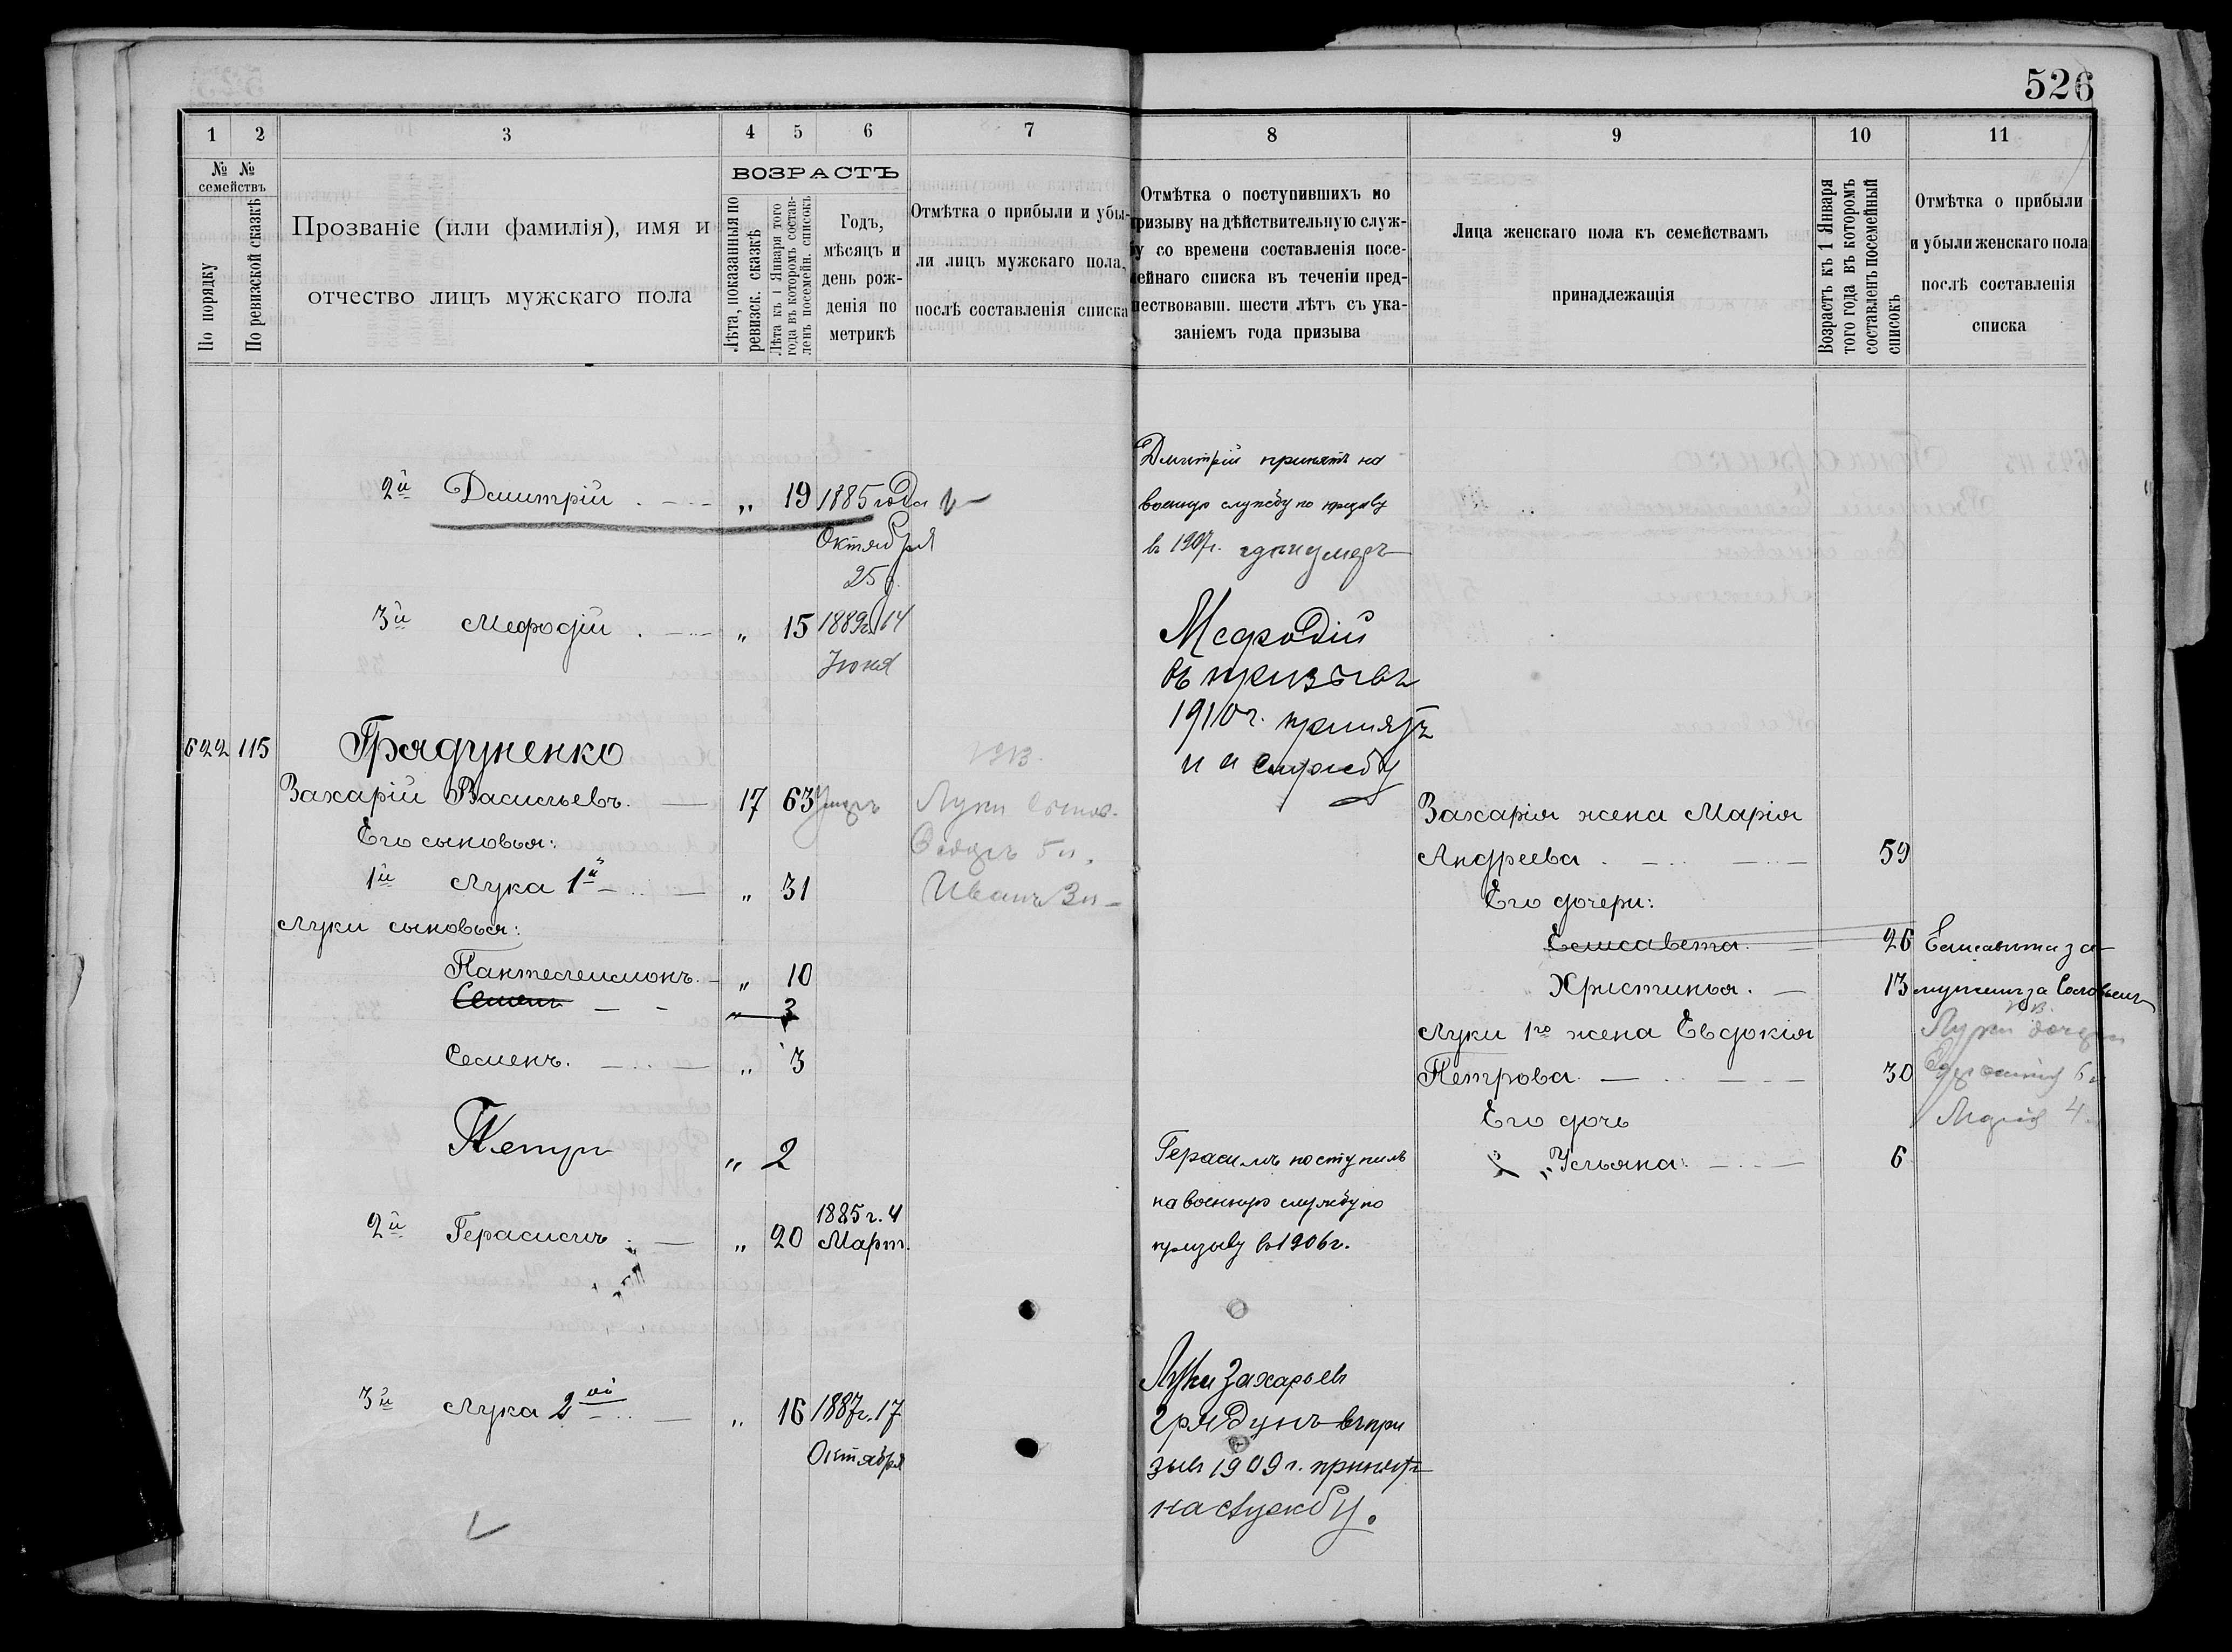 526
1
2
3
4
5
6
7
8
9
10
11
№ №
семействъ
По порядку
По ревизской сказкѣ
Прозваніе (или фамилія), имя и
отчество лицъ мужскаго пола
ВОЗРАСТЪ
Лѣта, показанныя по
ревизск. сказкѣ
Лѣта къ 1 Января того
года въ которомъ состав-
ленъ посемейн. списокъ
Годъ,
мѣсяцъ и
день рож-
денія по
метрикѣ
Отмѣтка о прибыли и убы-
ли лицъ мужскаго пола,
послѣ составленія списка
Отмѣтка о поступившихъ по
призыву на дѣйствительную служ-
у со времени составленія посе-
ейнаго списка въ теченіи пред-
шествовавш. шести лѣтъ съ ука-
заніемъ года призыва
Лица женскаго пола къ семействамъ
принадлежащія
Возрастъ къ 1 Января
того года въ которомъ
составленъ посемейный
списокъ
Отмѣтка о прибыли
и убыли женскаго пола
послѣ составленія
списка
2й Дмитрій „ 19 1885 года
Октября
25
Дмитрій принятъ на
военную службу по призыву
въ 1907г.
3й Мефодій „ 15 1889г. 14
Іюня
Мефодій
въ призывъ
1910г. принятъ
на службу
622 115 Грядуненко
Захарій Васильевъ. 17 63 Умеръ
Его сыновья:
1й Лука 1й „ 31
Луки сыновья:
Пантелеимонъ. „ 10
Семенъ „ 3
Семенъ. „ 3
Петръ „ 2
2й Герасимъ „ 20 1885г. 4
Март.
3й Лука 2ой „ 16 1887г. 17
Октября
1913.
Луки сынов.
Федоръ 5л.
Иванъ 3л
Герасимъ поступилъ
на военную службу по
призыву въ 1906г.
Луки Захарьев
Грядунъ въ при
зывъ 1909г. принятъ
на службу.
Захарія жена Марія
Андреева 59
Его дочери:
Елисавета 26 Елисавета за
Христинья. 13 мужемъ за Соловьемъ
Луки 1го жена Евдокія
Петрова 30
Его дочь
„ Ульяна 6
Луки дочери
Лидія 4